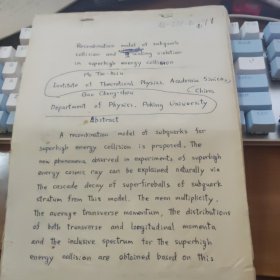 Recombination model of subquark
collision and scaling violation
in superhigh energy collision
Ho Tso-hsiu
Institute of Theoretical Physics, Academia Sinica,
China
Gao Chong-shou
Department of Physics, Peking University
Abstract
A recombination model of subquarks for
superhigh energy collision is proposed. The
new phenomena observed in experiments of superhigh
energy cosmic ray can be explained naturally via
the cascade decay of superfireballs of subquark
stratum from this model. The mean multiplicity,
the average transverse momentum, the distributions
of both transverse and longitudinal momenta
and the inclusive spectrum for the superhigh
energy collision are obtained based on this